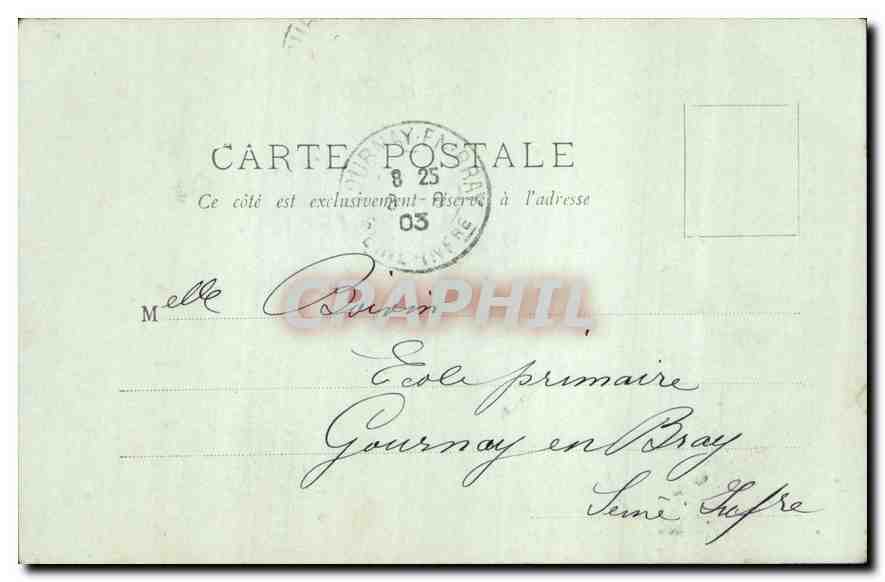 CARTE POSTALE
GOURNAY-EN-BRAY
8 25
03
SEINE-INFRE
Ce côté est exclusivement réservé à l'adresse
Melle Boivin
CPAPHIL
Ecole primaire
Gournay en Bray
Seine Infre